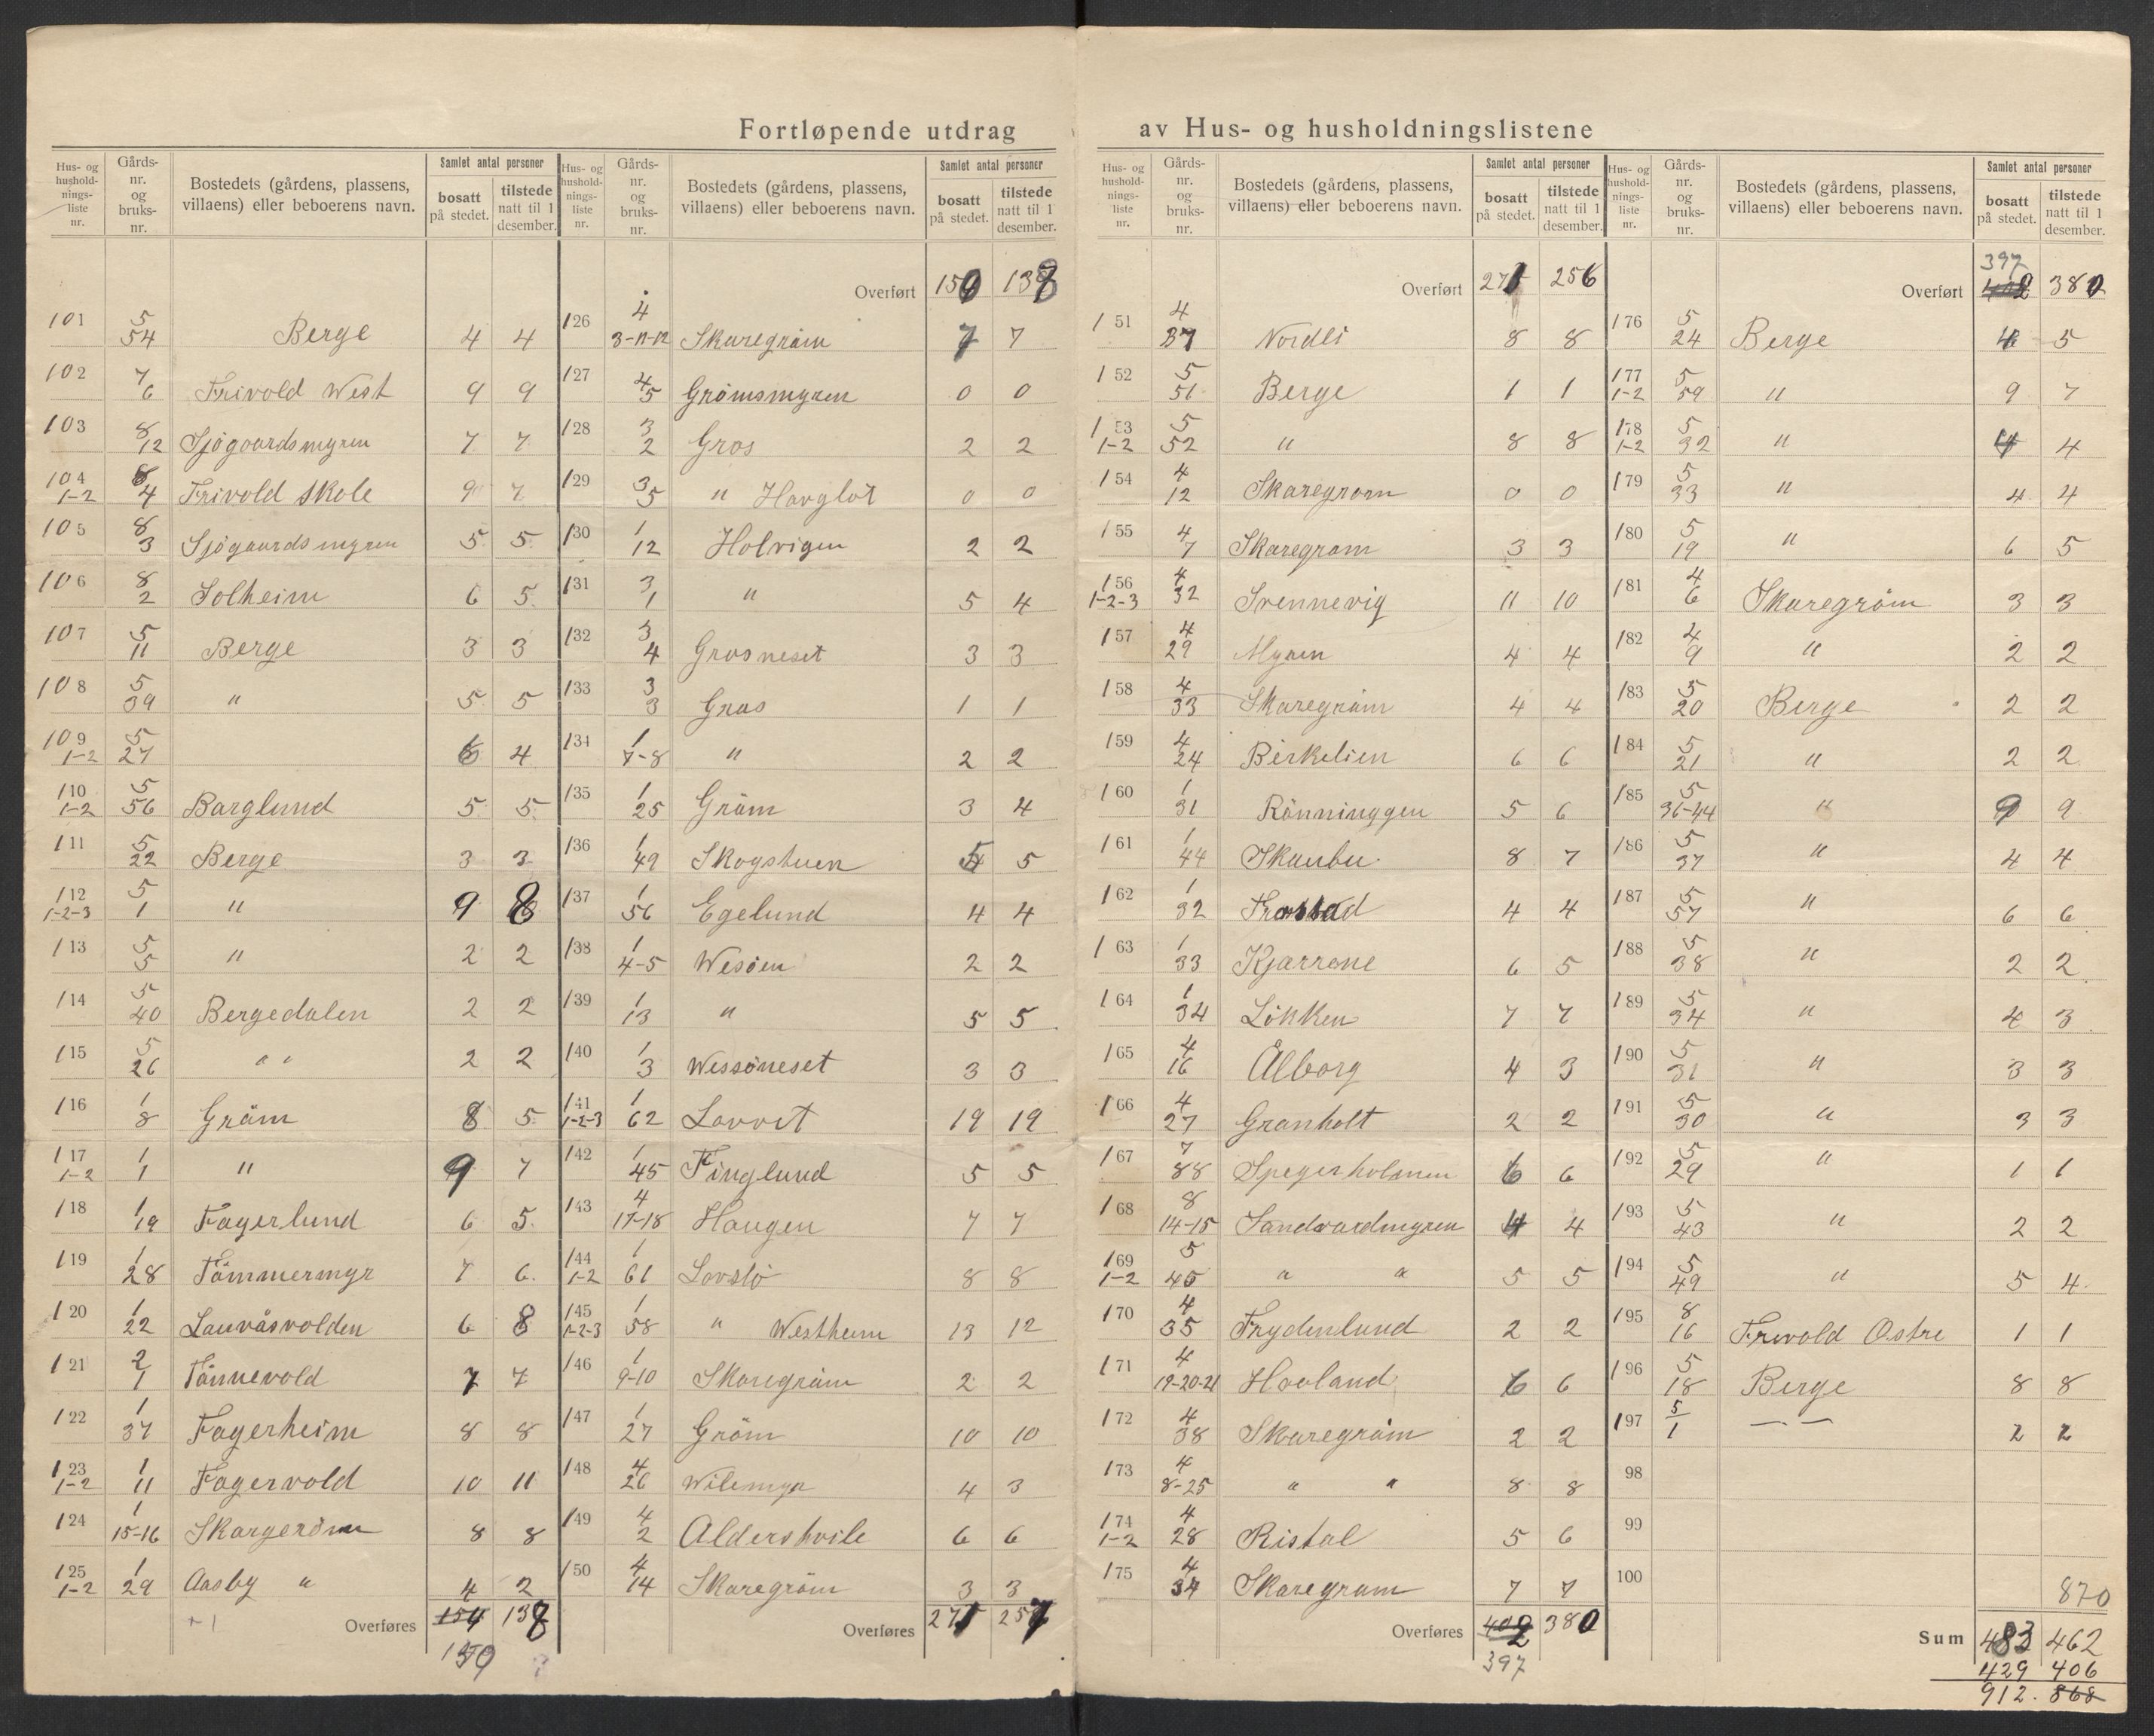 Fortløpende utdrag av Hus- og husholdningslistene
Hus- og husholdnings-liste nr. | Gårds-nr. og bruks-nr. | Bostedets (gårdens, plassens, villaens) eller beboerens navn. | Samlet antal personer | bosatt på stedet. | tilstede natt til 1 desember.
101 5/54 Berge 4 4
102 7/6 Frivold West 9 9
103 8/12 Sjøgaardsmyren 7 7
104 1-2 8/4 Frivold Skole 9 7
105 8/3 Sjøgaardsmyren 5 5
106 8/2 Solheim 6 5
107 5/11 Berge 3 3
108 5/39 " 5 5
109 1-2 5/27 6 4
110 1-2 5/56 Barglund 5 5
111 5/22 Berge 3 3
112 1-2-3 5/1 " 9 8
113 5/5 " 2 2
114 5/40 Bergedalen 2 2
115 5/26 " " 2 2
116 1/8 Gröm 8 5
117 1-2 1/1 " 9 7
118 1/19 Fagerlund 6 5
119 1/28 Tömmermyr 7 6
120 1/22 Lauvåsvolden 6 8
121 2/1 Tönnevold 7 7
122 1/37 Fagerheim 8 8
123 1-2 1/11 Fagervold 10 11
124 1/15-16 Skargeröm 8 8
125 1-2 1/29 Aasby " 4 2
+1 Overføres 154 138
150
Hus- og husholdnings-liste nr. | Gårds-nr. og bruks-nr. | Bostedets (gårdens, plassens, villaens) eller beboerens navn. | Samlet antal personer | bosatt på stedet. | tilstede natt til 1 desember.
Overført 150 138
126 4/3-11-12 Skaregröm 7 7
127 4/5 Grömsmyren 0 0
128 3/2 Gros 2 2
129 3/5 " Havgløt 0 0
130 1/12 Holvigen 2 2
131 3/1 " 5 4
132 3/4 Grosneset 3 3
133 3/3 Gros 1 1
134 1/7-8 " 2 2
135 1/25 Gröm 3 4
136 1/49 Skogstuen 5 5
137 1/56 Egelund 4 4
138 1/4-5 Wesöen 2 2
139 1/13 " 5 5
140 1/3 Wessöneset 3 3
141 1-2-3 1/62 Lovvet 19 19
142 1/45 Finglund 5 5
143 4/17-18 Haugen 7 7
144 1-2 1/61 Lovslö 8 8
145 1-2-3 1/58 " Westheim 13 12
146 1/9-10 Skaregröm 2 2
147 1/27 Gröm 10 10
148 4/26 Wilemyr 4 3
149 4/2 Aldershvile 6 6
150 4/14 Skaregröm 3 3
Overføres 271 257
Hus- og husholdnings-liste nr. | Gårds-nr. og bruks-nr. | Bostedets (gårdens, plassens, villaens) eller beboerens navn. | Samlet antal personer | bosatt på stedet. | tilstede natt til 1 desember.
Overført 271 256
151 4/37 Nordli 8 8
152 5/51 Berge 1 1
153 1-2 5/52 " 8 8
154 4/12 Skaregrom 0 0
155 4/7 Skaregrom 3 3
156 1-2-3 4/32 Svennevig 11 10
157 4/29 Myren 4 4
158 4/33 Skaregröm 4 4
159 4/24 Birkelien 6 6
160 1/31 Rönninggen 5 6
161 1/44 Skaubu 8 7
162 1/32 Frostad 4 4
163 1/33 Kjarrene 6 5
164 1/34 Lökken 7 7
165 4/16 Ålborg 4 3
166 4/27 Granholt 2 2
167 7/88 Spegerholmen 6 6
168 8/14-15 Sandvardmyren 4 4
169 1-2 5/45 " " 5 5
170 4/35 Frydenlund 2 2
171 4/19-20-21 Hovland 6 6
172 4/38 Skaregröm 2 2
173 4/8-25 " " 8 8
174 1-2 4/28 Ristal 5 6
175 4/34 Skaregrom 7 7
Overføres 402 380
397
Hus- og husholdnings-liste nr. | Gårds-nr. og bruks-nr. | Bostedets (gårdens, plassens, villaens) eller beboerens navn. | Samlet antal personer | bosatt på stedet. | tilstede natt til 1 desember.
397
Overført 402 380
176 5/24 Berge 4 5
177 1-2 5/59 " 9 7
178 1-2 5/32 " 4 4
179 5/33 " 4 4
180 5/19 " 6 5
181 4/6 Skaregröm 3 3
182 4/9 " 2 2
183 5/20 Berge 2 2
184 5/21 " 2 2
185 5/36-44 " 9 9
186 5/37 " 4 4
187 5/57 " 6 6
188 5/38 " 2 2
189 5/34 " 4 3
190 5/31 " 3 3
191 5/30 " 3 3
192 5/29 " 1 1
193 5/43 " 2 2
194 5/49 " 5 4
195 8/16 Frivold Østre 1 1
196 5/18 Berge 8 8
197 5/1 — — 2 2
98
99
100
870
Sum 483 462
429 406
912. 868